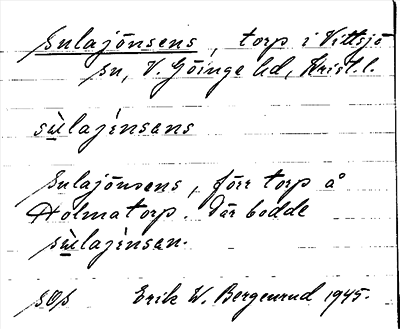 Sulajönsens, torp i Vittsjö
sn, V. Göinge hd, Krist. l.
sɯ̀lajènsans
Sulajönsens, förr torp å
Holmatorp. Där bodde
sɯ̀lajènsan.
Erik W. Bergenrud 1945.